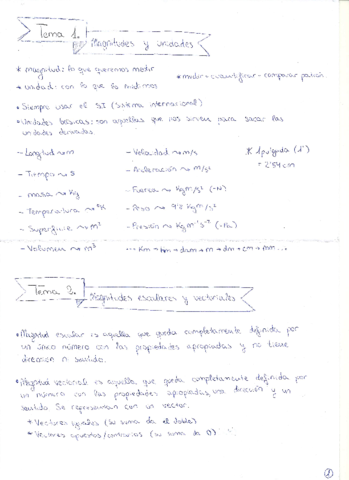 Tema 1.
Magnitudes y unidades
* magnitud: lo que queremos medir
* medir = cuantificar - comparar patrón
* unidad: con lo que lo medimos
* Siempre usar el SI (Sistema internacional)
* Unidades básicas: son aquellas que nos sirven para sacar las
unidades derivadas.
- Longitud ~ m
- Velocidad ~ m/s
* 1 pulgada (1")
= 2'54 cm
- Tiempo ~ s
- Aceleración ~ m/s²
- masa ~ Kg
- Fuerza ~ Kg m/s² (~N)
- Temperatura ~ °K
- Peso ~ 9'8 Kg m/s²
- Superficie ~ m²
- Presión ~ Kg m⁻¹ s⁻²
- Volumen ~ m³
... Km - hm - dam - m - dm - cm - mm ...
Tema 2.
Magnitudes escalares y vectoriales
* Magnitud escalar es aquella que queda completamente definida por
un único número con las propiedades apropiadas y no tiene
dirección ni sentido.
* Magnitud vectorial es aquella que queda completamente definida por
un número con las propiedades apropiadas, una dirección y un
sentido. Se representan con un vector.
+ Vectores iguales (su suma da el doble)
- Vectores opuestos/contrarios (su suma da 0)